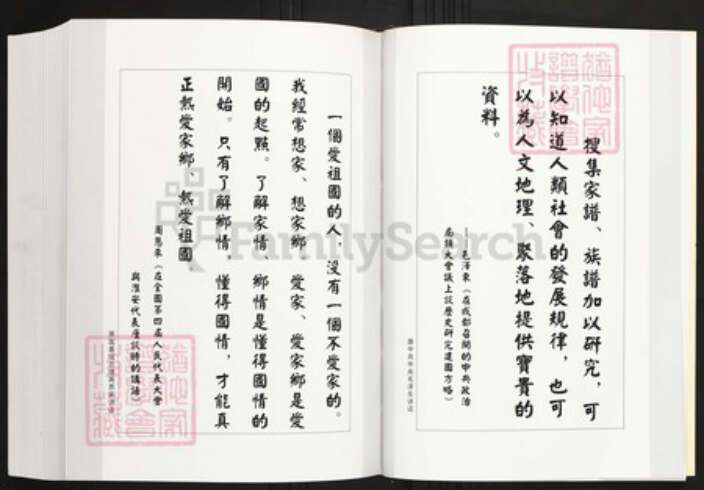 搜集家譜、族譜加以研究，可
以知道人類社會的發展規律，也可
以為人文地理、聚落地提供寶貴的
資料。
——毛澤東（在成都召開的中共政治
局擴大會議上談歷史研究建國方略）
一個愛祖國的人，沒有一個不愛家的。
我經常想家、想家鄉、愛家、愛家鄉是愛
國的起點。了解家情、鄉情是懂得國情的
開始。只有了解鄉情，懂得國情，才能真
正熱愛家鄉、熱愛祖國。
周恩來（在全國第四屆人民代表大會
與淮安代表座談時的講話）
FamilySearch